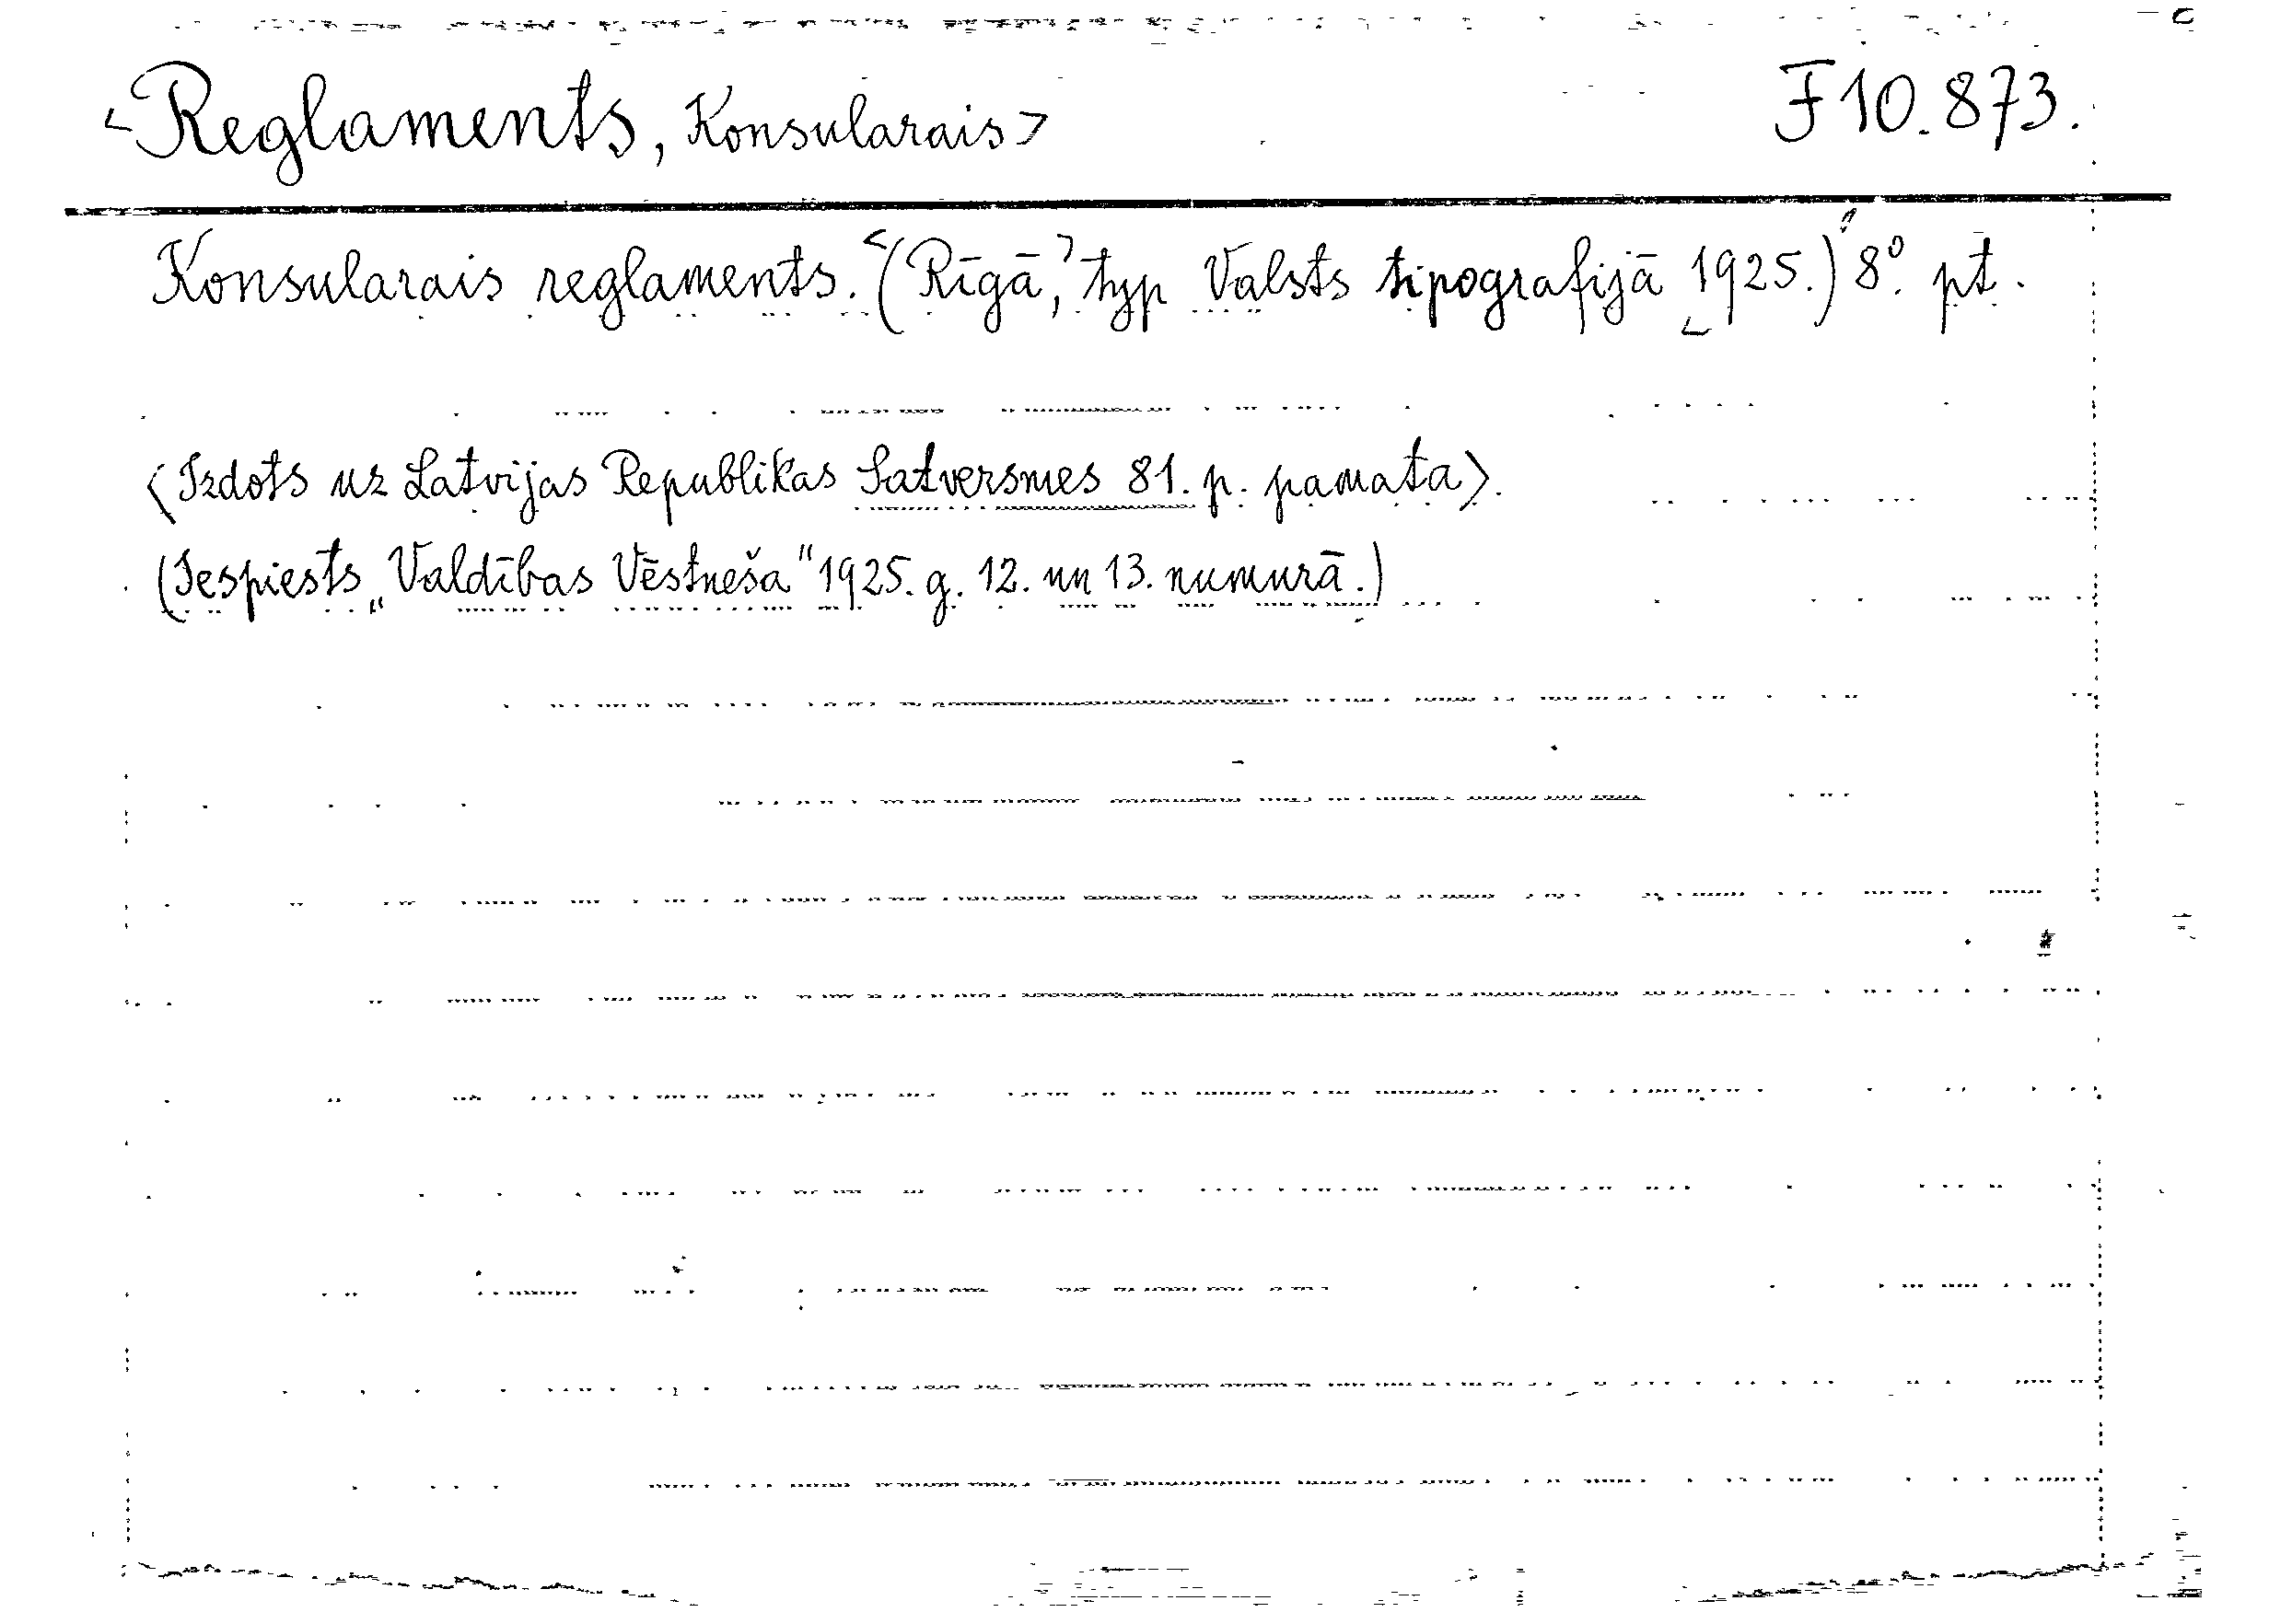 <Reglaments, Konsularais> F 10.873.
Konsularais reglaments. <(Rīgā,> typ Valsts tipografijā <1925.)> 8º. pt.
<Izdots uz Latvijas Republikas Satversmes 81. p. pamata>.
(Iespiests „Valdības Vēstneša" 1925. g. 12. un 13. numurā.)